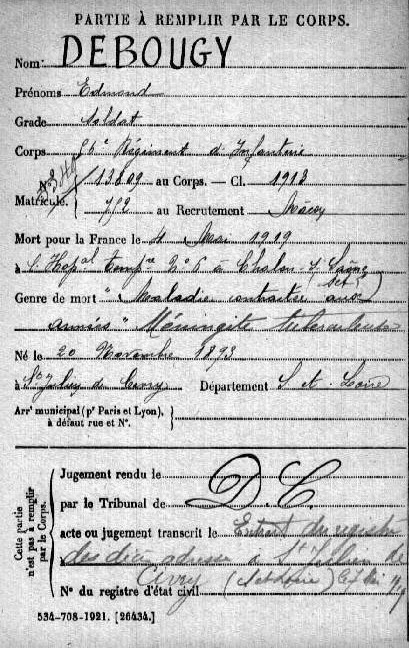 PARTIE À REMPLIR PAR LE CORPS.
Nom DEBOUGY
Prénoms Edmond
Grade Soldat
Corps 56e Régiment d'Infanterie
13609 au Corps. — Cl. 1913
Matricule.
752 au Recrutement Mâcon
Mort pour la France le 4 Mai 1919
à l'Hopal Tempre n° 6 à Chalon s/ Saône
Genre de mort "Maladie contractée aux
armées" Méningite tuberculeuse
Né le 20 Novembre 1893
à St Julien de Civry Département S. et. Loire
Arrt municipal (pr Paris et Lyon),
à défaut rue et N°.
Cette partie
n'est pas à remplir
par le Corps.
Jugement rendu le
par le Tribunal de D. C.
acte ou jugement transcrit le Extrait des registres
à St Julien de
Civry
N° du registre d'état civil
534-708-1921. [26434.]